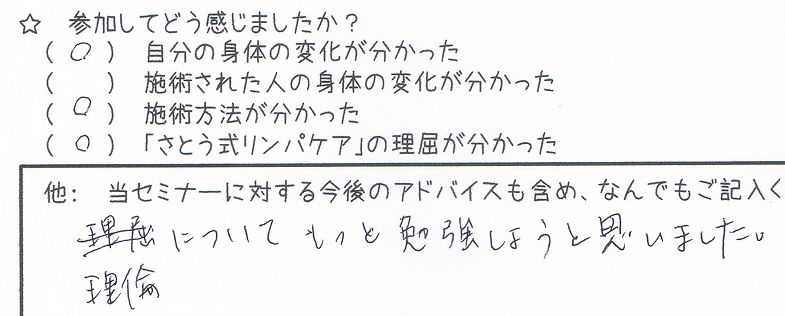 ☆ 参加してどう感じましたか?
( ○ ) 自分の身体の変化が分かった
( ) 施術された人の身体の変化が分かった
( ○ ) 施術方法が分かった
( ○ ) 「さとう式リンパケア」の理屈が分かった
他: 当セミナーに対する今後のアドバイスも含め、なんでもご記入く
理屈についてもっと勉強しようと思いました。
理倫